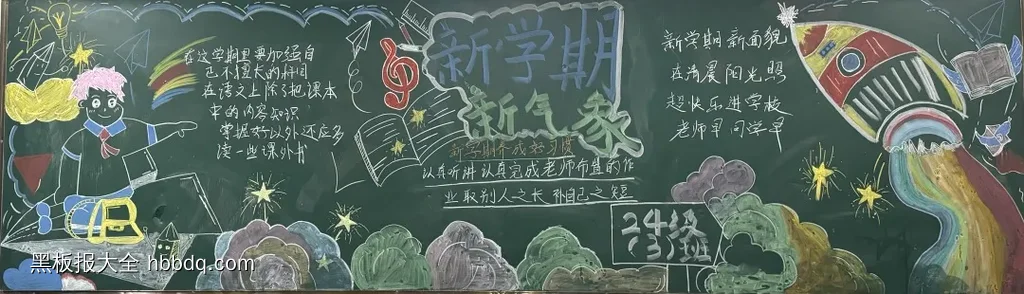 在这学期里要加强自
己不擅长的科目
在语文上除了把课本
中的内容知识
掌握好以外还应多
读一些课外书
新学期
新气象
新学期养成好习惯
认真听讲认真完成老师布置的作
业取别人之长补自己之短
24级
(3)班
新学期新面貌
在清晨阳光照
超快乐进学校
老师早同学早
黑板报大全 hbbdq.com